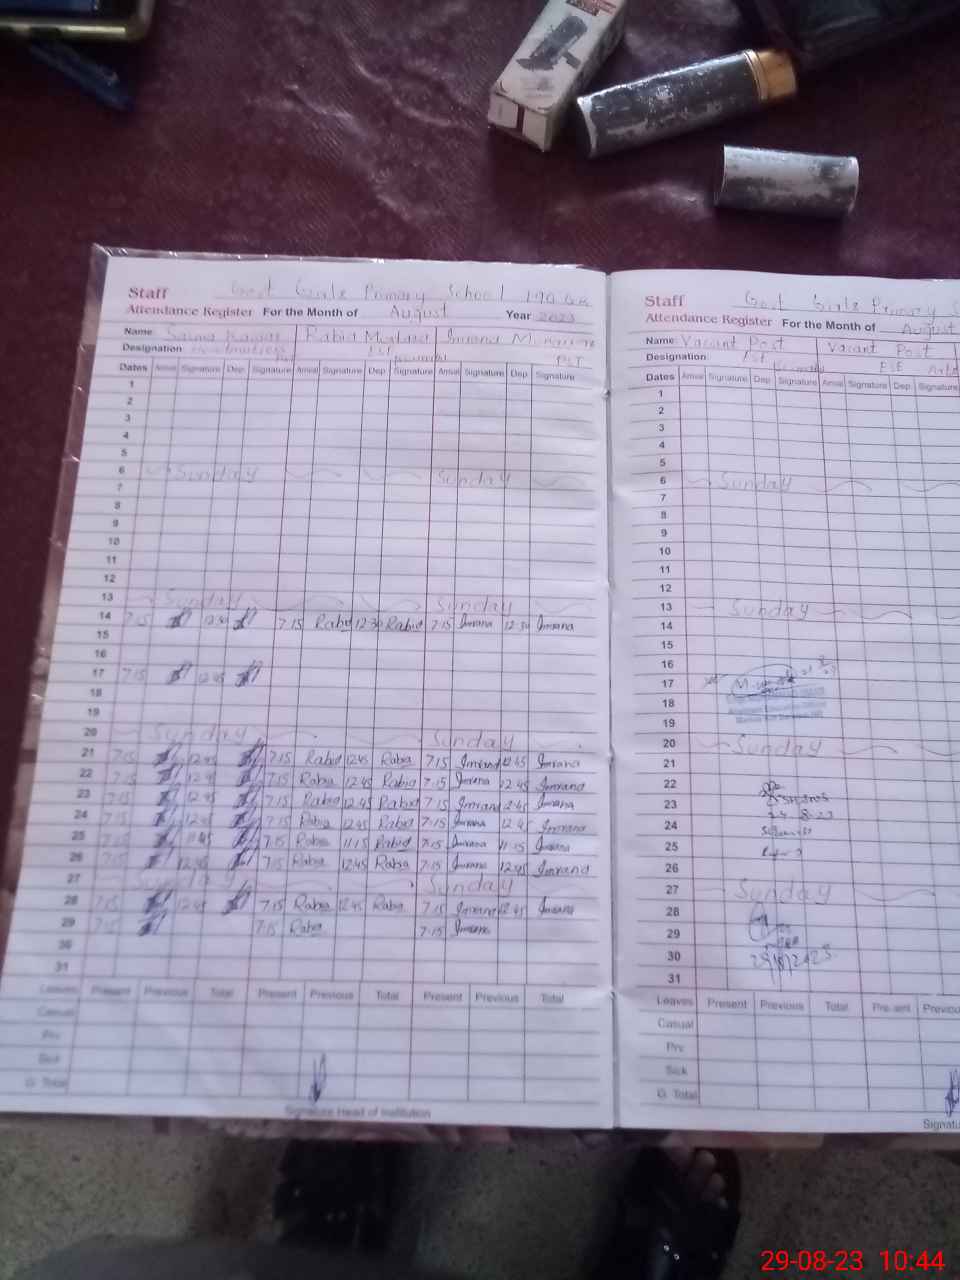 Staff Govt Girls Primary School 190
Attendance Register For the Month of August Year 2023
Name Rabia Imrana
Designation 1st PST
Dates Arrival Signature Dep. Signature Arrival Signature Dep. Signature Arrival Signature Dep. Signature
1
2
3
4
5
6 Sunday Sunday
7
8
9
10
11
12
13 Sunday Sunday
14 7:15 12:30 7:15 Rabia 12:30 Rabia 7:15 Imrana 12:30 Imrana
15
16
17 7:15 12:45
18
19
20 Sunday Sunday
21 7:15 12:45 7:15 Rabia 12:45 Rabia 7:15 Imrana 12:45 Imrana
22 7:15 12:45 7:15 Rabia 12:45 Rabia 7:15 Imrana 12:45 Imrana
23 7:15 12:45 7:15 Rabia 12:45 Rabia 7:15 Imrana 12:45 Imrana
24 7:15 12:45 7:15 Rabia 12:45 Rabia 7:15 Imrana 12:45 Imrana
25 7:15 11:45 7:15 Rabia 11:15 Rabia 7:15 Imrana 11:15 Imrana
26 7:15 12:45 7:15 Rabia 12:45 Rabia 7:15 Imrana 12:45 Imrana
27 Sunday Sunday
28 7:15 12:45 7:15 Rabia 12:45 Rabia 7:15 Imrana 12:45 Imrana
29 7:15 7:15 Rabia 7:15 Imrana
30
31
Leaves Present Previous Total Present Previous Total Present Previous Total
Casual
Prv.
Sick
G. Total
Signature Head of Institution
Staff Govt Girls Primary S
Attendance Register For the Month of August
Name Vacant Post Vacant Post
Designation: 1st ESE
Dates Arrival Signature Dep. Signature Arrival Signature Dep. Signature
1
2
3
4
5
6 Sunday
7
8
9
10
11
12
13 Sunday
14
15
16
17
18
19
20 Sunday
21
22
23
24
25
26
27 Sunday
28
29
30 29/8/2023
31
Leaves Present Previous Total Present Previou
Casual
Prv.
Sick
G. Total
Signatu
29-08-23 10:44